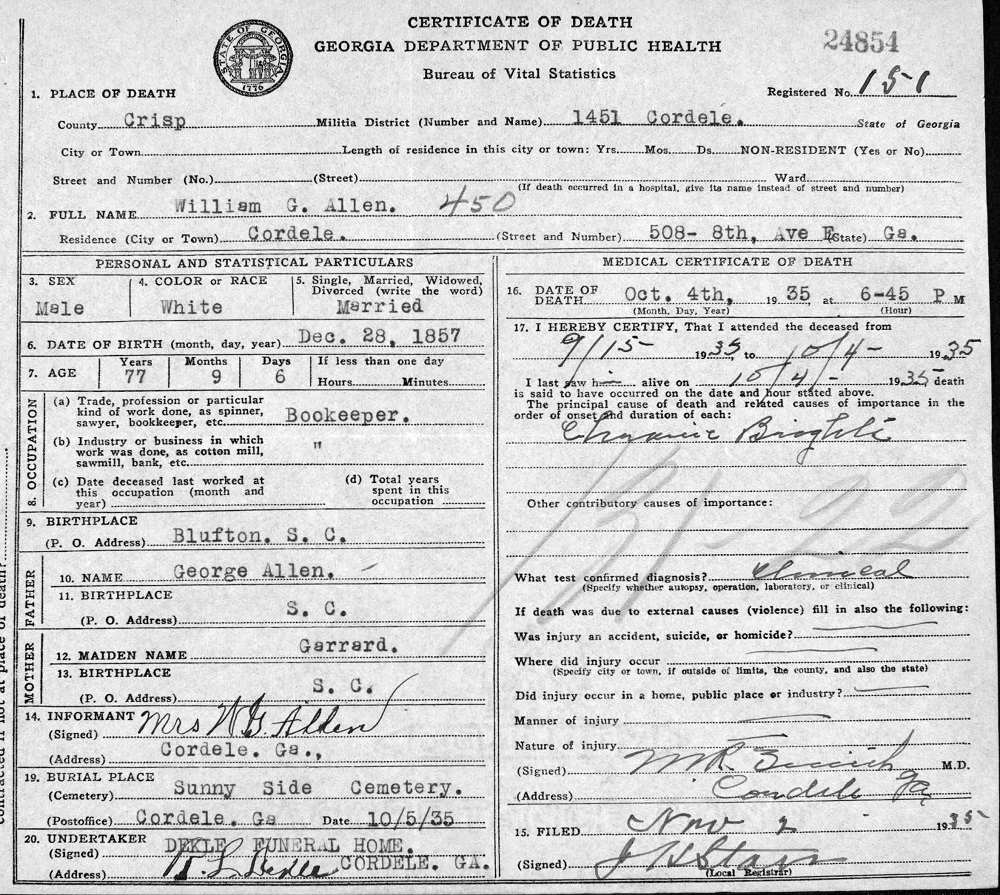 CERTIFICATE OF DEATH
GEORGIA DEPARTMENT OF PUBLIC HEALTH
Bureau of Vital Statistics
STATE OF GEORGIA
1776
24854
Registered No. 151
1. PLACE OF DEATH
County Crisp Militia District (Number and Name) 1451 Cordele. State of Georgia
City or Town Length of residence in this city or town: Yrs. Mos. Ds. NON-RESIDENT (Yes or No)
Street and Number (No.) (Street) Ward
(If death occurred in a hospital, give its name instead of street and number)
2. FULL NAME William G. Allen. 450
Residence (City or Town) Cordele. (Street and Number) 508- 8th, Ave E (State) Ga.
PERSONAL AND STATISTICAL PARTICULARS
3. SEX Male
4. COLOR or RACE White
5. Single, Married, Widowed, Divorced (write the word) Married
6. DATE OF BIRTH (month, day, year) Dec. 28, 1857
7. AGE Years 77 Months 9 Days 6 If less than one day Hours Minutes
8. OCCUPATION
(a) Trade, profession or particular
kind of work done, as spinner,
sawyer, bookkeeper, etc. Bookeeper.
(b) Industry or business in which
work was done, as cotton mill,
sawmill, bank, etc. "
(c) Date deceased last worked at
this occupation (month and
year)
(d) Total years
spent in this
occupation
9. BIRTHPLACE
(P. O. Address) Blufton. S. C.
FATHER
10. NAME George Allen.
11. BIRTHPLACE
(P. O. Address) S. C.
MOTHER
12. MAIDEN NAME Garrard.
13. BIRTHPLACE
(P. O. Address) S. C.
14. INFORMANT
(Signed) Mrs W G Allen
(Address) Cordele. Ga.,
19. BURIAL PLACE
(Cemetery) Sunny Side Cemetery.
(Postoffice) Cordele. Ga Date 10/5/35
20. UNDERTAKER DEKLE FUNERAL HOME.
(Signed)
(Address) Dekle CORDELE. GA.
MEDICAL CERTIFICATE OF DEATH
16. DATE OF DEATH Oct. 4th, 1935, at 6-45 P M
(Month, Day, Year) (Hour)
17. I HEREBY CERTIFY, That I attended the deceased from
9/15- 1935, to 10/4- 1935
I last saw h alive on 10/4- 1935, death
is said to have occurred on the date and hour stated above.
The principal cause of death and related causes of importance in the
order of onset and duration of each:
Chronic Brights
131-22
Other contributory causes of importance:
What test confirmed diagnosis? Clinical
(Specify whether autopsy, operation, laboratory, or clinical)
If death was due to external causes (violence) fill in also the following:
Was injury an accident, suicide, or homicide?
Where did injury occur
(Specify city or town, if outside of limits, the county, and also the state)
Did injury occur in a home, public place or industry?
Manner of injury
Nature of injury
(Signed) M.D.
(Address) Cordele Ga
15. FILED Nov 2 1935
(Signed)
(Local Registrar)
contracted if not at place of death?